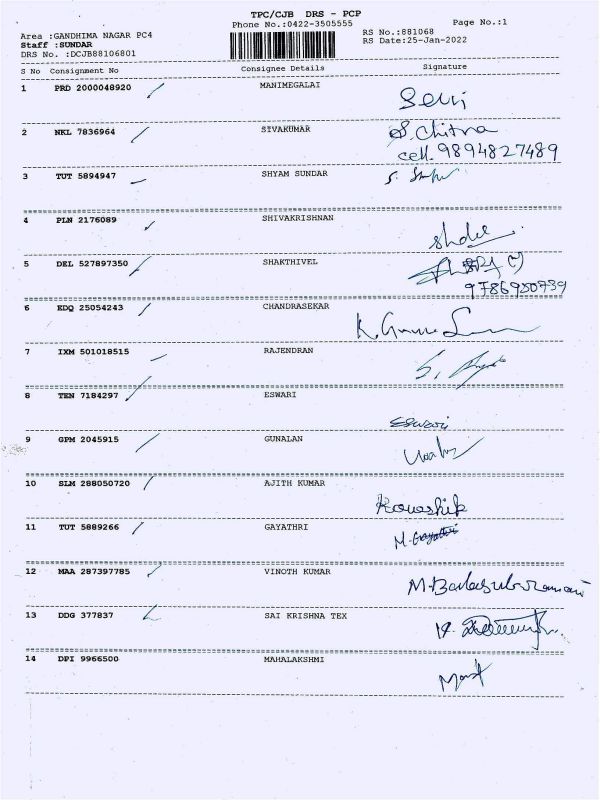 TPC/CJB DRS - PCP
Phone No.:0422-3505555
Page No.:1
Area :GANDHIMA NAGAR PC4
RS No.:881068
Staff :SUNDAR
RS Date:25-Jan-2022
DRS No. :DCJB88106801
S No Consignment No Consignee Details Signature
1 PRD 2000048920 MANIMEGALAI
Selvi
2 NKL 7836964 SIVAKUMAR S. Chitra
cell. 9894827489
3 TUT 5894947 SHYAM SUNDAR
4 PLN 2176089 SHIVAKRISHNAN
5 DEL 527897350 SHAKTHIVEL
9786950739
6 EDQ 25054243 CHANDRASEKAR
7 IXM 501018515 RAJENDRAN
8 TEN 7184297 ESWARI
Eswari
9 GPM 2045915 GUNALAN
10 SLM 288050720 AJITH KUMAR
Kowshik
11 TUT 5889266 GAYATHRI
M. Gayathri
12 MAA 287397785 VINOTH KUMAR
M. Balasubramani
13 DDG 377837 SAI KRISHNA TEX
14 DPI 9966500 MAHALAKSHMI